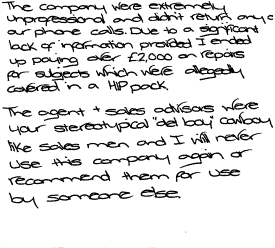 The company were extremely
unprofessional and didn't return any of
our phone calls. Due to a significant
lack of information provided I ended
up paying over £2,000 on repairs
for subjects which were allegedly
covered in a HIP pack.
The agent + sales advisors were
your stereotypical "del boy" cowboy
like sales men and I will never
use this company again or
recommend them for use
by someone else.